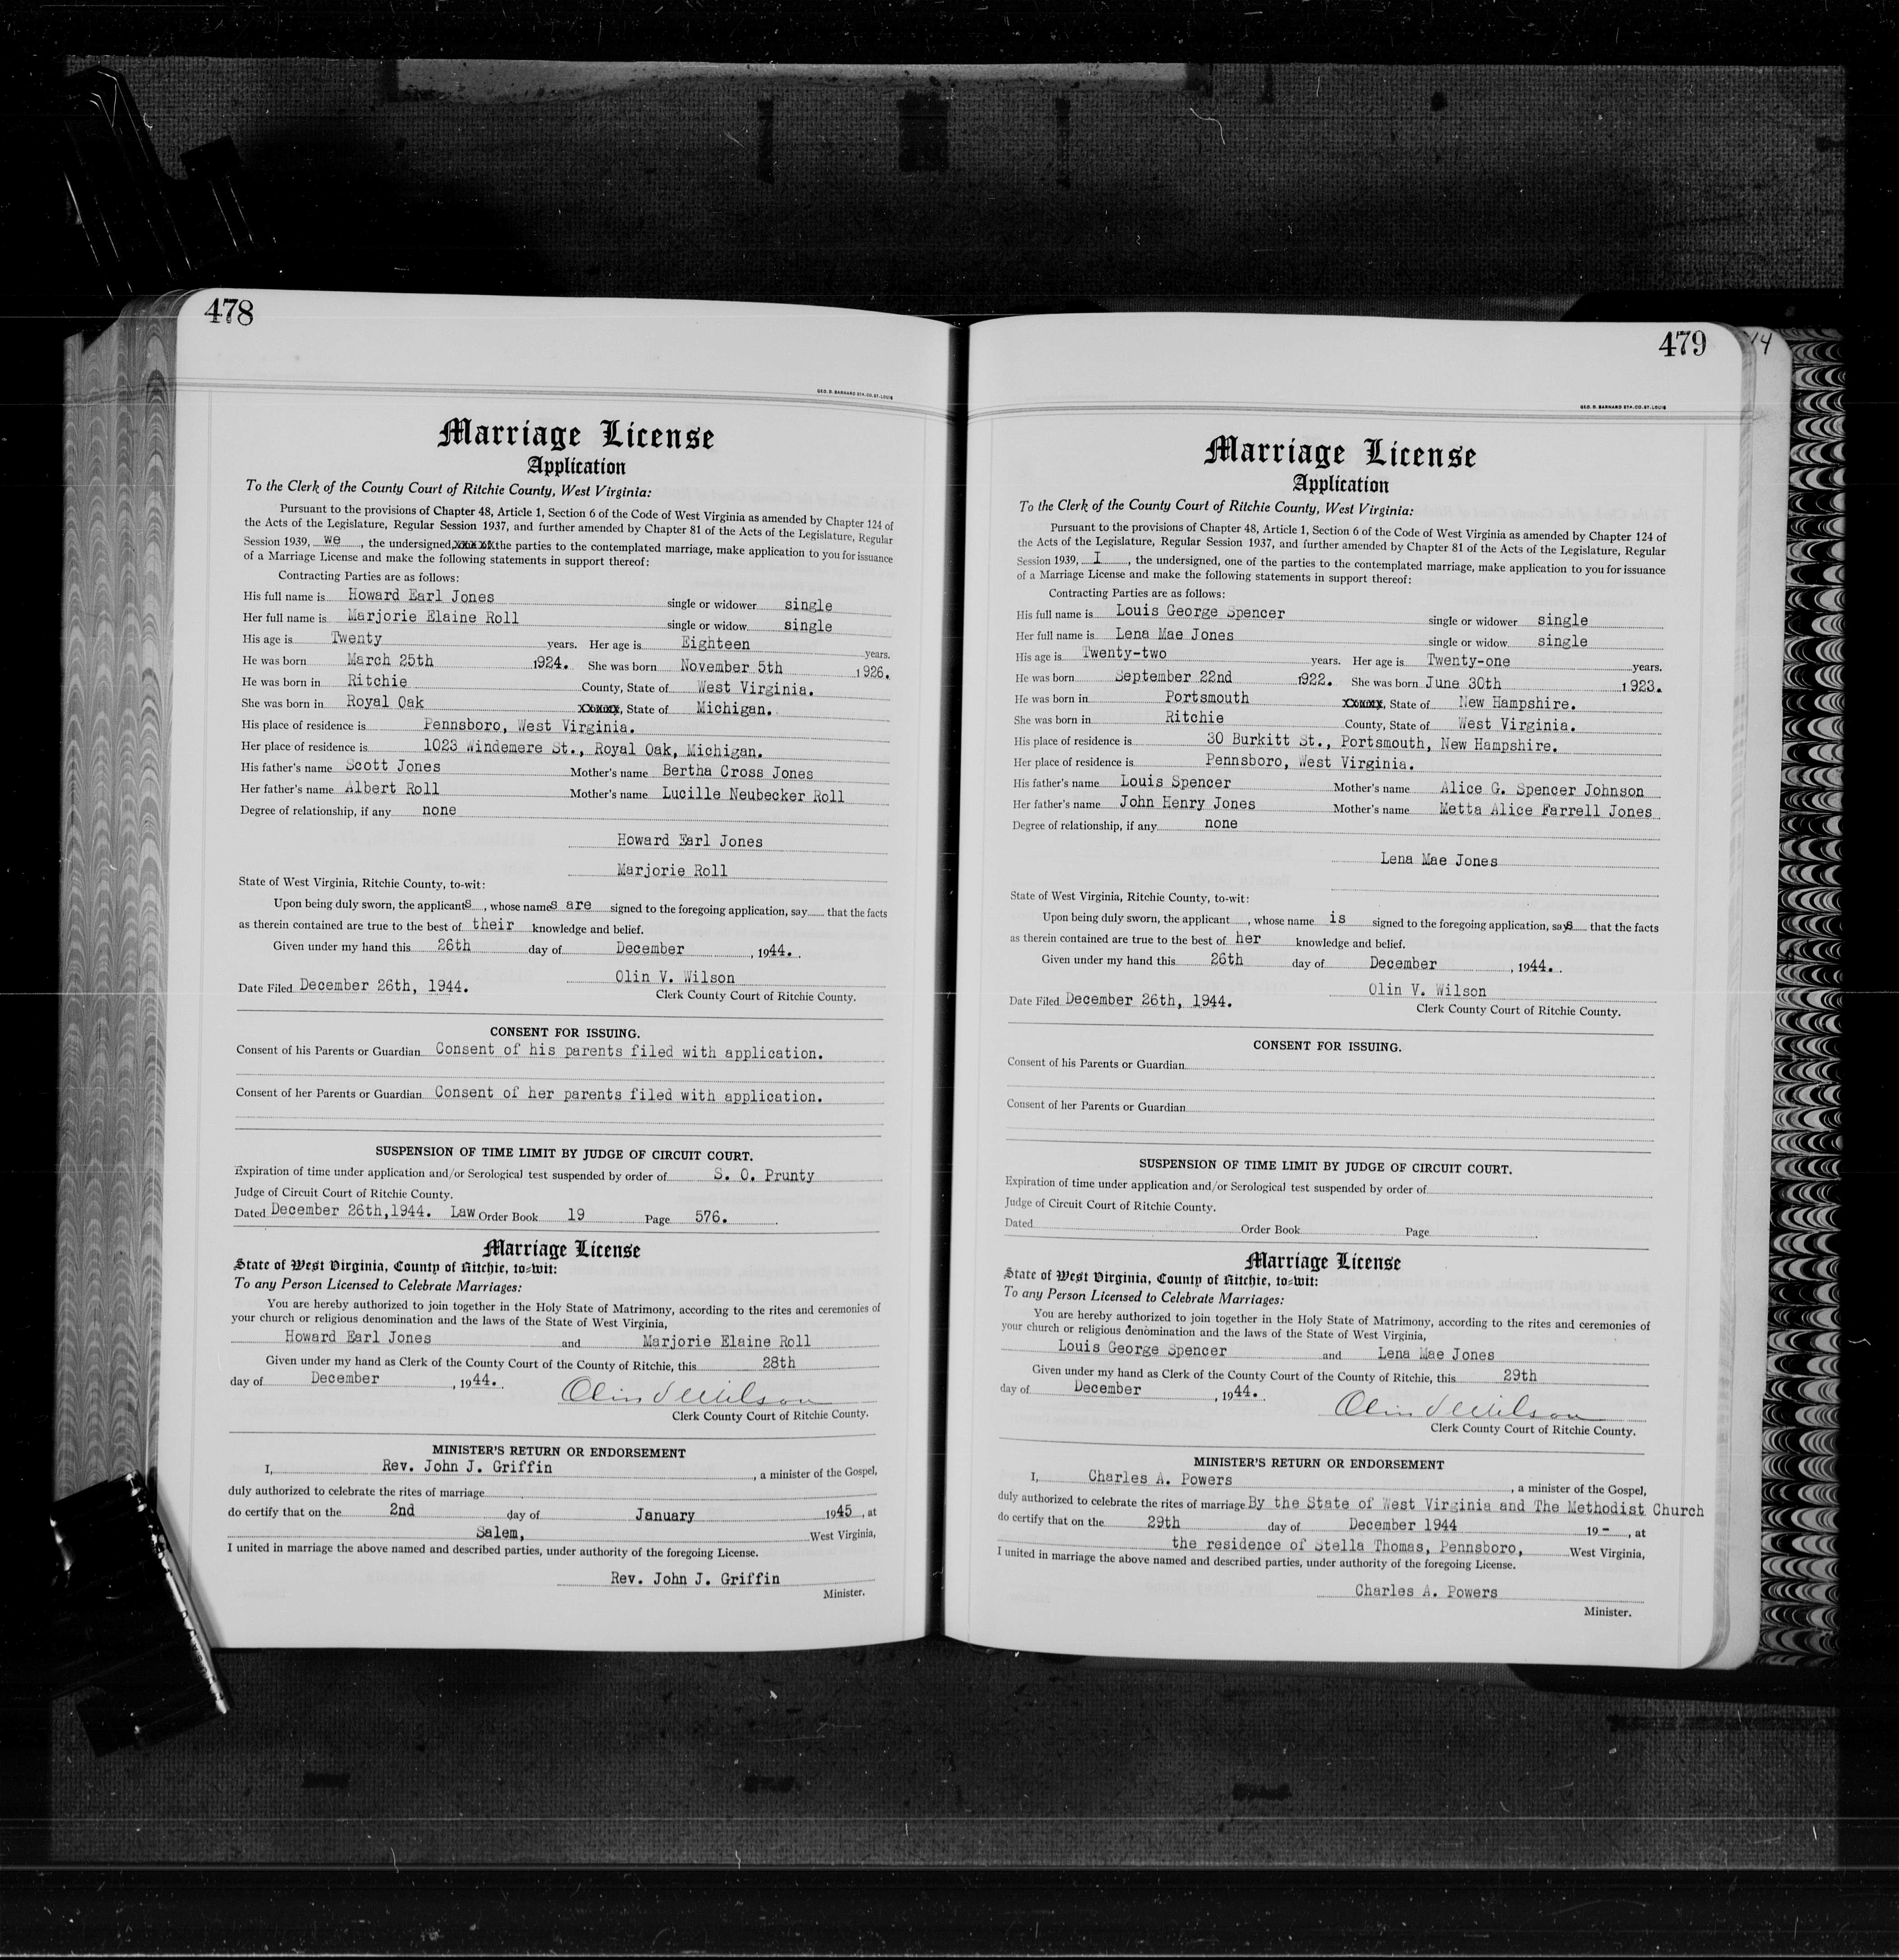 478
GEO. D. BARNARD STA. CO. ST. LOUIS
Marriage License
Application
To the Clerk of the County Court of Ritchie County, West Virginia:
Pursuant to the provisions of Chapter 48, Article 1, Section 6 of the Code of West Virginia as amended by Chapter 124 of
the Acts of the Legislature, Regular Session 1937, and further amended by Chapter 81 of the Acts of the Legislature, Regular
Session 1939, we, the undersigned, xxx xx the parties to the contemplated marriage, make application to you for issuance
of a Marriage License and make the following statements in support thereof:
Contracting Parties are as follows:
His full name is Howard Earl Jones single or widower single
Her full name is Marjorie Elaine Roll single or widow single
His age is Twenty years. Her age is Eighteen years.
He was born March 25th 1924. She was born November 5th 1926.
He was born in Ritchie County, State of West Virginia.
She was born in Royal Oak xxxxxx, State of Michigan.
His place of residence is Pennsboro, West Virginia.
Her place of residence is 1023 Windemere St., Royal Oak, Michigan.
His father's name Scott Jones Mother's name Bertha Cross Jones
Her father's name Albert Roll Mother's name Lucille Neubecker Roll
Degree of relationship, if any none
Howard Earl Jones
Marjorie Roll
State of West Virginia, Ritchie County, to-wit:
Upon being duly sworn, the applicants, whose names are signed to the foregoing application, say that the facts
as therein contained are true to the best of their knowledge and belief.
Given under my hand this 26th day of December, 1944.
Olin V. Wilson
Date Filed December 26th, 1944. Clerk County Court of Ritchie County.
CONSENT FOR ISSUING.
Consent of his Parents or Guardian Consent of his parents filed with application.
Consent of her Parents or Guardian Consent of her parents filed with application.
SUSPENSION OF TIME LIMIT BY JUDGE OF CIRCUIT COURT.
Expiration of time under application and/or Serological test suspended by order of S. O. Prunty
Judge of Circuit Court of Ritchie County.
Dated December 26th, 1944. Law Order Book 19 Page 576.
Marriage License
State of West Virginia, County of Ritchie, to-wit:
To any Person Licensed to Celebrate Marriages:
You are hereby authorized to join together in the Holy State of Matrimony, according to the rites and ceremonies of
your church or religious denomination and the laws of the State of West Virginia,
Howard Earl Jones and Marjorie Elaine Roll
Given under my hand as Clerk of the County Court of the County of Ritchie, this 28th
day of December, 1944. Olin V Wilson
Clerk County Court of Ritchie County.
MINISTER'S RETURN OR ENDORSEMENT
I, Rev. John J. Griffin, a minister of the Gospel,
duly authorized to celebrate the rites of marriage
do certify that on the 2nd day of January 1945, at
Salem, West Virginia,
I united in marriage the above named and described parties, under authority of the foregoing License.
Rev. John J. Griffin
Minister.
479
14
GEO. D. BARNARD STA. CO. ST. LOUIS
Marriage License
Application
To the Clerk of the County Court of Ritchie County, West Virginia:
Pursuant to the provisions of Chapter 48, Article 1, Section 6 of the Code of West Virginia as amended by Chapter 124 of
the Acts of the Legislature, Regular Session 1937, and further amended by Chapter 81 of the Acts of the Legislature, Regular
Session 1939, I, the undersigned, one of the parties to the contemplated marriage, make application to you for issuance
of a Marriage License and make the following statements in support thereof:
Contracting Parties are as follows:
His full name is Louis George Spencer single or widower single
Her full name is Lena Mae Jones single or widow single
His age is Twenty-two years. Her age is Twenty-one years.
He was born September 22nd 1922. She was born June 30th 1923.
He was born in Portsmouth xxxxxx, State of New Hampshire.
She was born in Ritchie County, State of West Virginia.
His place of residence is 30 Burkitt St., Portsmouth, New Hampshire.
Her place of residence is Pennsboro, West Virginia.
His father's name Louis Spencer Mother's name Alice G. Spencer Johnson
Her father's name John Henry Jones Mother's name Metta Alice Farrell Jones
Degree of relationship, if any none
Lena Mae Jones
State of West Virginia, Ritchie County, to-wit:
Upon being duly sworn, the applicant, whose name is signed to the foregoing application, says that the facts
as therein contained are true to the best of her knowledge and belief.
Given under my hand this 26th day of December, 1944.
Olin V. Wilson
Date Filed December 26th, 1944. Clerk County Court of Ritchie County.
CONSENT FOR ISSUING.
Consent of his Parents or Guardian
Consent of her Parents or Guardian
SUSPENSION OF TIME LIMIT BY JUDGE OF CIRCUIT COURT.
Expiration of time under application and/or Serological test suspended by order of
Judge of Circuit Court of Ritchie County.
Dated Order Book Page
Marriage License
State of West Virginia, County of Ritchie, to-wit:
To any Person Licensed to Celebrate Marriages:
You are hereby authorized to join together in the Holy State of Matrimony, according to the rites and ceremonies of
your church or religious denomination and the laws of the State of West Virginia,
Louis George Spencer and Lena Mae Jones
Given under my hand as Clerk of the County Court of the County of Ritchie, this 29th
day of December, 1944. Olin V Wilson
Clerk County Court of Ritchie County.
MINISTER'S RETURN OR ENDORSEMENT
I, Charles A. Powers, a minister of the Gospel,
duly authorized to celebrate the rites of marriage By the State of West Virginia and The Methodist Church
do certify that on the 29th day of December 1944 19-, at
the residence of Stella Thomas, Pennsboro, West Virginia,
I united in marriage the above named and described parties, under authority of the foregoing License.
Charles A. Powers
Minister.